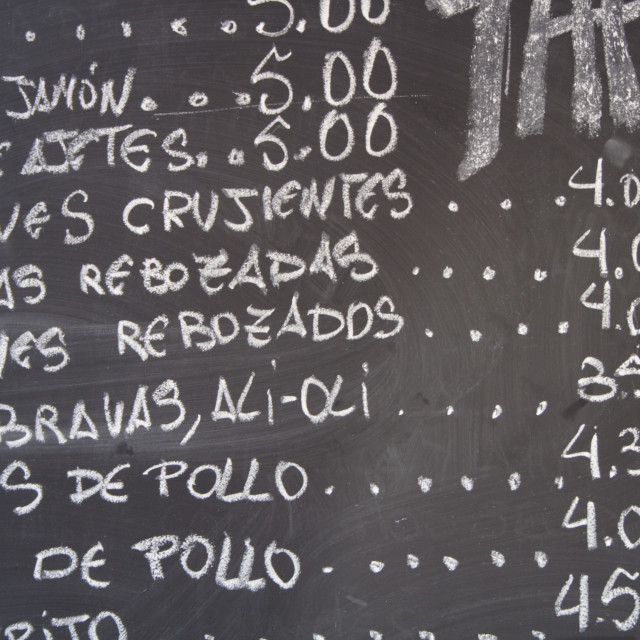 . . . . . . 5.00
JAMÓN. . . 5.00
E AJETES. . 5.00
VES CRUJIENTES . . . 4.
AS REBOZADAS . . . . 4.0
NES REBOZADOS . . . . 4.0
BRAVAS, ALI-OLI . . . . 3.
S DE POLLO . . . . . . 4.2
DE POLLO . . . . . . 4.0
RITO 4.5